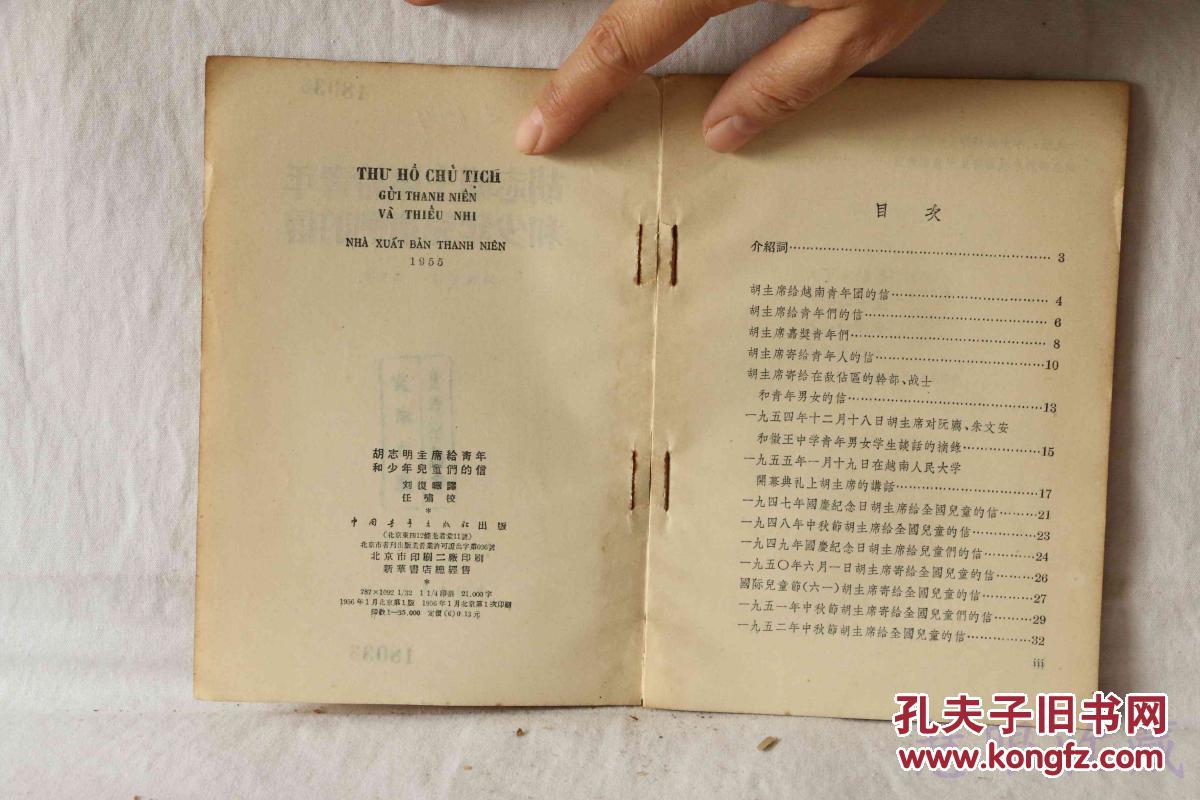 THƯ HỒ CHỦ TỊCH
GỬI THANH NIÊN
VÀ THIẾU NHI
NHÀ XUẤT BẢN THANH NIÊN
1955
胡志明主席給青年
和少年兒童們的信
刘復暉譯
任嘯校
*
中国青年出版社出版
(北京東四12條老君堂11號)
北京市書刊出版業營業許可證出字第036號
北京市印刷二廠印刷
新華書店總經售
*
787×1092 1/32 1 1/4印張 21,000字
1956年1月北京第1版 1956年1月北京第1次印刷
印數1—35,000 定價(6)0.13元
目次
介紹詞……3
胡主席給越南青年团的信……4
胡主席給青年們的信……6
胡主席嘉獎青年們……8
胡主席寄給青年人的信……10
胡主席寄給在敌佔區的幹部、战士
和青年男女的信……13
一九五四年十二月十八日胡主席对阮廌、朱文安
和徵王中学青年男女学生談話的摘錄……15
一九五五年一月十九日在越南人民大学
開幕典礼上胡主席的講話……17
一九四七年國慶紀念日胡主席給全國兒童的信……21
一九四八年中秋節胡主席給全國兒童的信……23
一九四九年國慶紀念日胡主席給兒童們的信……24
一九五〇年六月一日胡主席寄給全國兒童的信……26
國际兒童節(六一)胡主席寄給全國兒童的信……27
一九五一年中秋節胡主席寄給全國兒童們的信……29
一九五二年中秋節胡主席給全國兒童的信……32
iii
孔夫子旧书网
www.kongfz.com